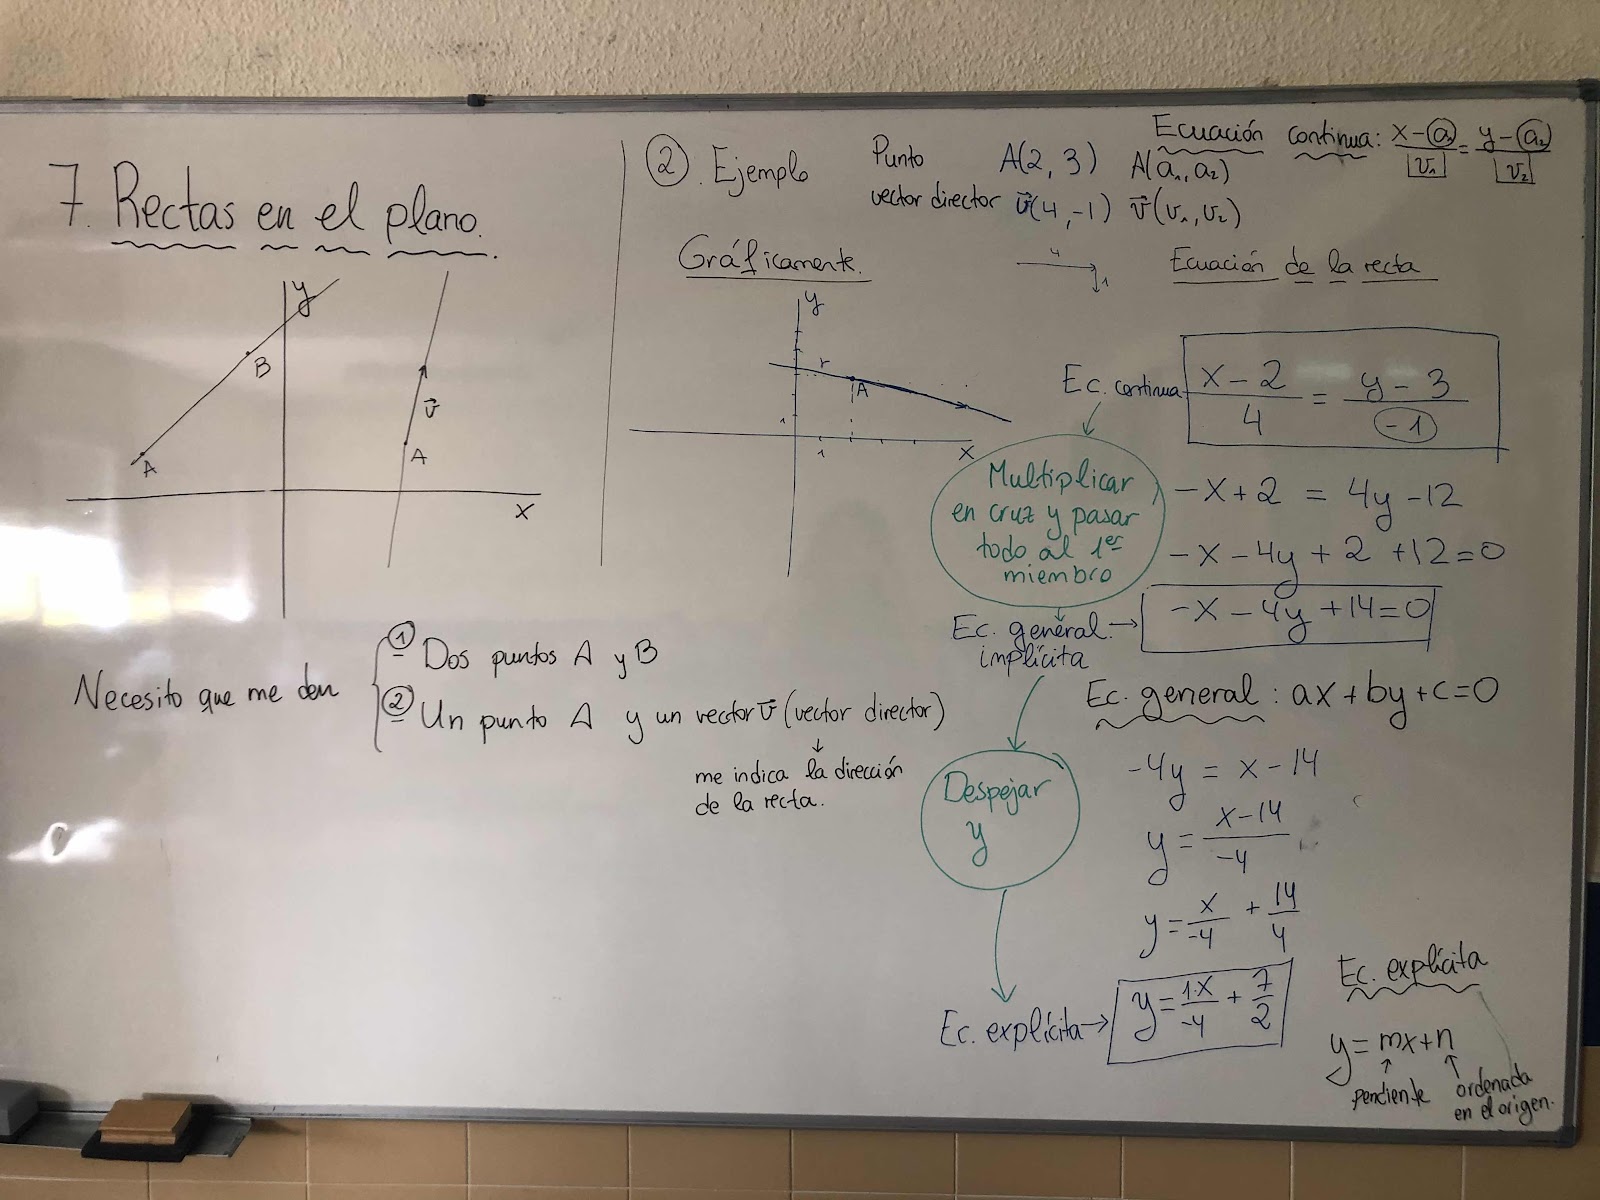 7. Rectas en el plano.
y
B
A
v⃗
A
x
Necesito que me den
① Dos puntos A y B
② Un punto A y un vector v⃗ (vector director)
↓
me indica la dirección
de la recta.
②. Ejemplo
Punto A(2, 3) A(a₁, a₂)
vector director v⃗(4, -1) v⃗(v₁, v₂)
Ecuación continua: (x-a₁)/v₁ = (y-a₂)/v₂
Gráficamente.
4
1
y
r
A
1
1
x
Ecuación de la recta
Ec. continua (x-2)/4 = (y-3)/-1
Multiplicar
en cruz y pasar
todo al 1er
miembro
-x+2 = 4y-12
-x-4y+2+12=0
Ec. general → -x-4y+14=0
implícita
Ec. general: ax+by+c=0
Despejar
y
-4y = x-14
y = (x-14)/-4
y = x/-4 + 14/4
Ec. explícita → y = 1·x/-4 + 7/2
Ec. explícita
y = mx+n
pendiente
ordenada
en el origen.